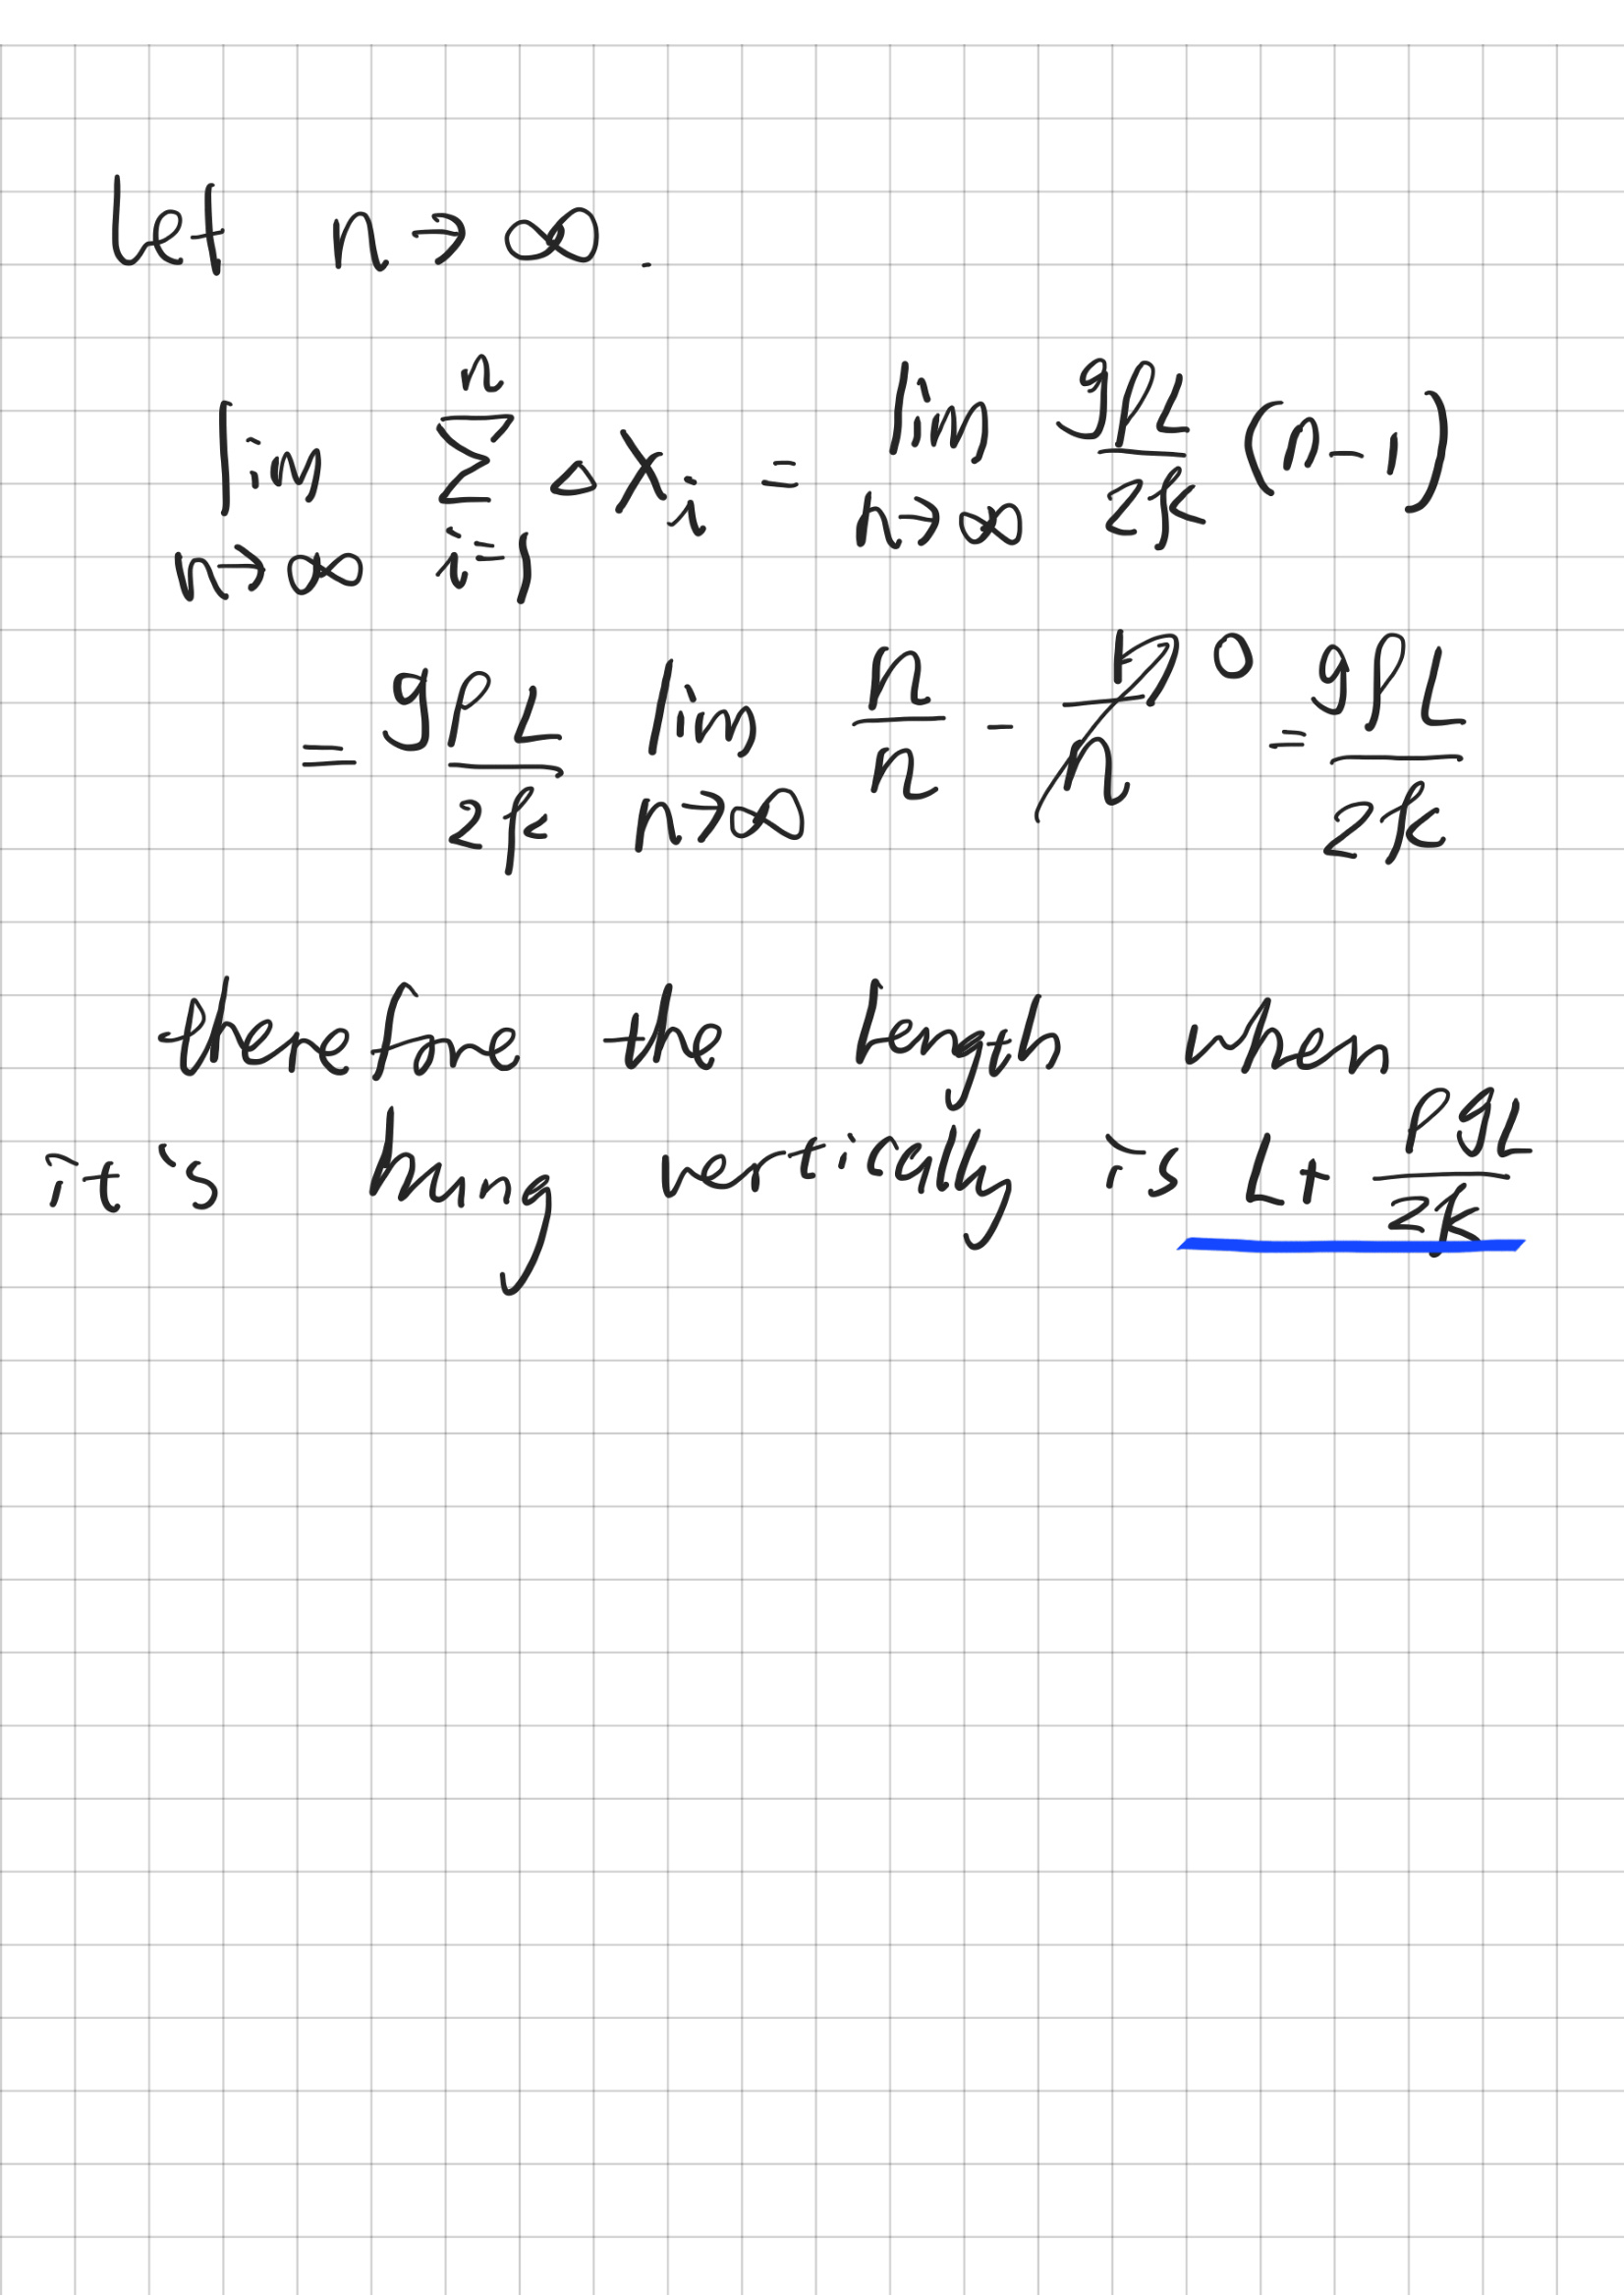 let n→∞.
lim n→∞ Σ i=1 n Δx_i = lim n→∞ gρL/2k (n-1)
= gρL/2k lim n→∞ n/n - 1/n 0 = gρL/2k
therefore the length when
it's hung vertically is L+ ρgL/2k